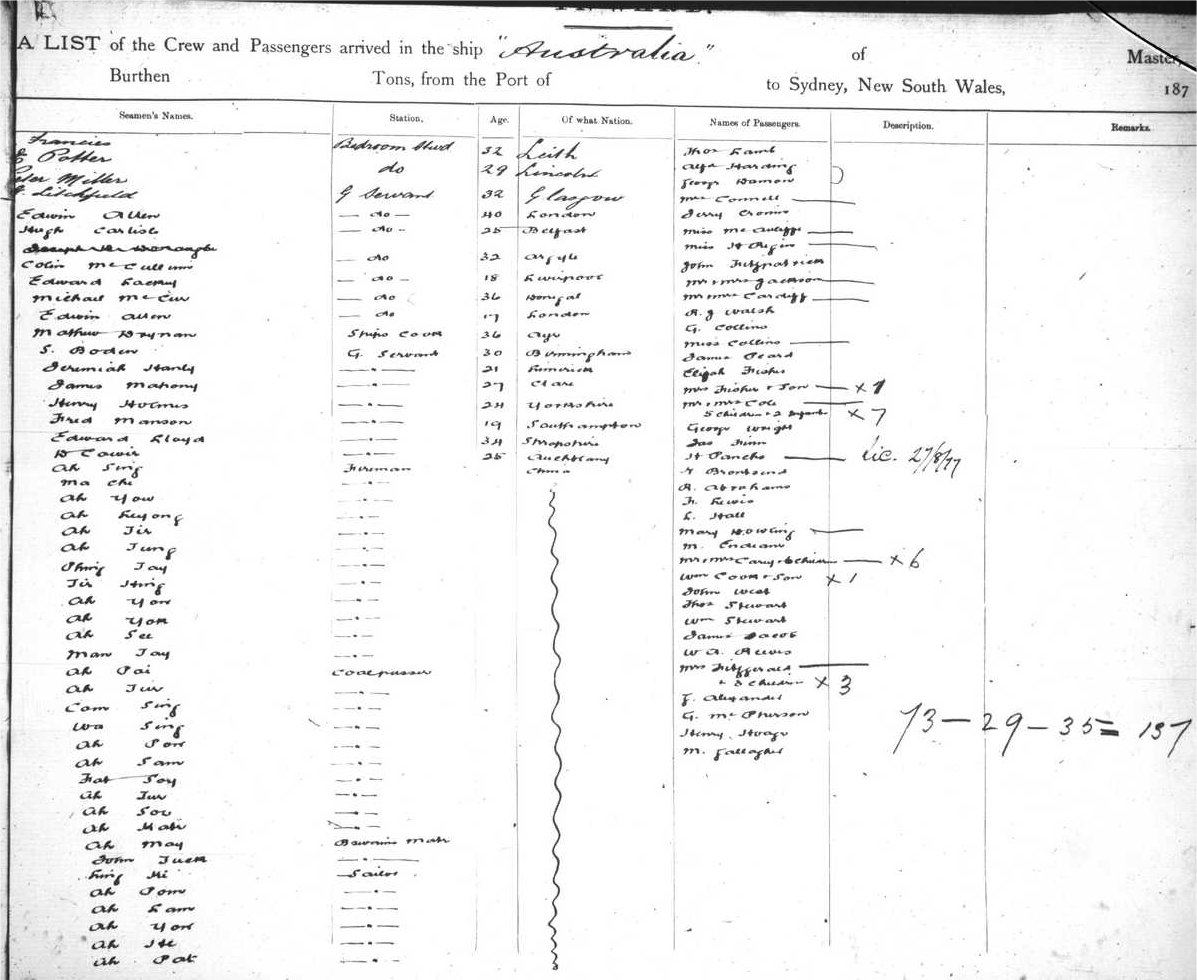 A LIST of the Crew and Passengers arrived in the ship "Australia" of Master,
Burthen Tons, from the Port of to Sydney, New South Wales, 187
Seamen's Names. Station. Age. Of what Nation. Names of Passengers. Description. Remarks.
Francies Bedroom Stwd 32 Leith Thos Lamb
E Potter do 29 Lincoln Alfd Harding
Peter Miller George Damon
Litchfield G Servant 32 Glasgow Mrs Connell
Edwin Allen — do — 40 London Jerry Cronin
Hugh Carlisle — do - 25 Belfast Miss McAuliffe
Miss H
Colin McCullum — do 32 Argyle John Fitzpatrick
Edward Lackey — do - 18 Liverpool Mr & Mrs Jackson
Michael McCur — do 36 Donegal Mr Mrs Cardiff
Edwin Allen — do 17 London R. J Walsh
Mathew Ships Cook 36 Ayr G. Collins
S. Boden G. Servant 30 Birmingham Miss Collins
Jeremiah Hanly 21 Limerick James Peard
James Mahony 27 Clare Elijah Fisher
Henry Holmes 24 Yorkshire Mrs Fisher & Son x 1
Fred Manson 19 Southampton Mr & Mrs Cole
5 Children & 2 Infants x 7
Edward Lloyd 34 Shropshire George Wright
D Cowie 25 Jas Finn
Ah Sing Fireman China H Pancho Lic. 27/8/77
Ma Chi
Ah You R. Abrahams
Ah Luyong Fr. Lewis
Ah Tir L. Hall
Ah Tung Mary Dowling
Tay M.
Tir Hing Mr & Mrs Carey & Children x 6
Ah Yon Wm Cook & Son x 1
Ah Yok John West
Ah See Thos Stewart
Man Tay Wm Stewart
Ah Pai Coalpasser James Jacob
Ah Tur W A.
Com Sing Mrs Fitzgerald
& 3 Children x 3
Wa Sing F. Alexander
Ah Pon G. McPherson
Ah Sam Henry Hoage
73 — 29 — 35 = 137
Fat Soy M. Gallagher
Ah Tur
Ah Sou
Ah
Ah May Mate
John Tuck
Ling Ki Sailor
Ah Pom
Ah Lam
Ah Yon
Ah He
Ah Pat